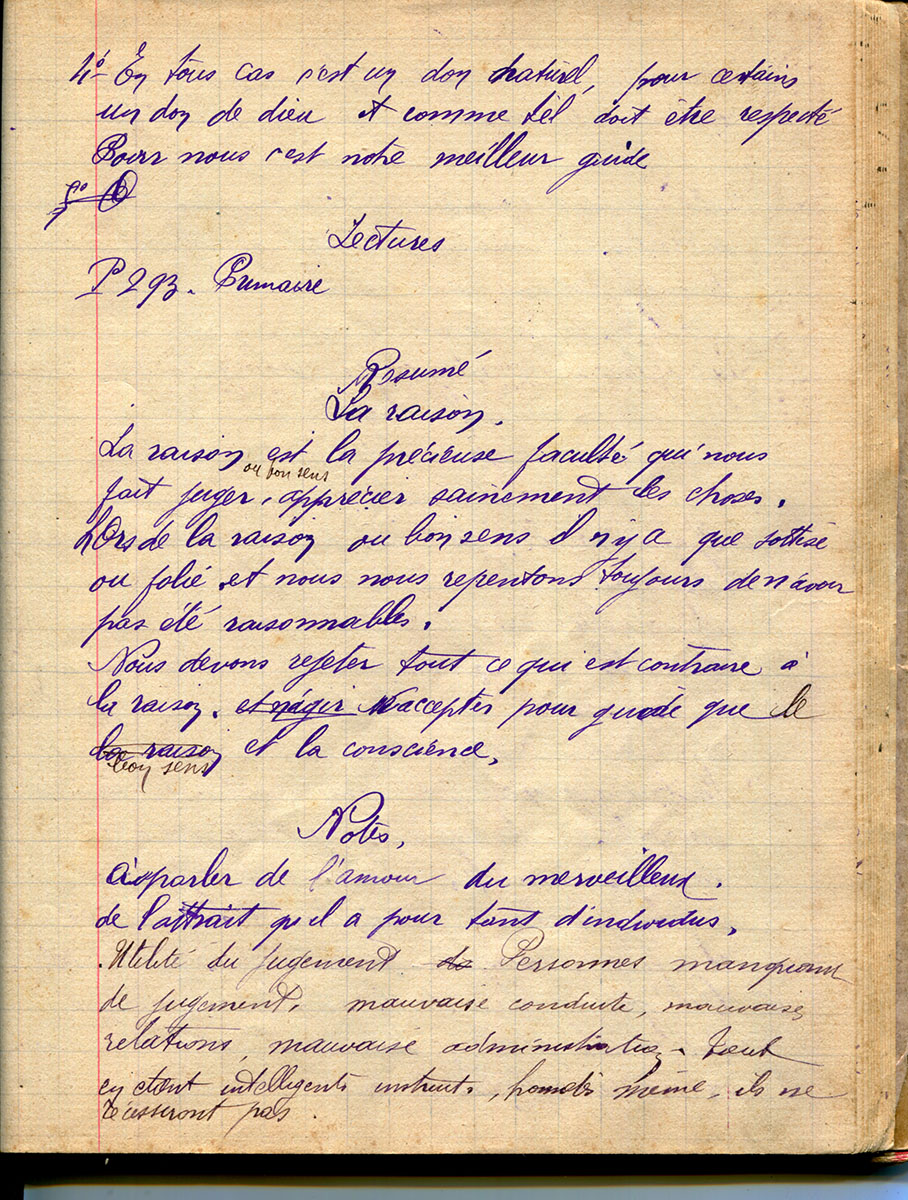 4º- En tous cas c'est un don naturel, pour certains
un don de dieu et comme tel doit être respecté
Pour nous c'est notre meilleur guide
5º
Lectures
P 293. Primaire
Resumé
La raison.
La raison est la précieuse faculté qui nous
ou bon sens
fait juger, apprécier sainement les choses.
hors de la raison ou bon sens il n'y a que sottise
ou folie et nous nous repentons toujours de n'avoir
pas été raisonnables.
Nous devons rejeter tout ce qui est contraire à
la raison. et n'agir N'accepter pour guide que le
la raison et la conscience,
bon sens
Notes,
à parler de l'amour du merveilleux.
de l'attrait qu'il a pour tant d'individus,
Utilité du jugement de Personnes manquant
de jugement, mauvaise conduite, mauvaises
relations, mauvaise administration. Tout
en étant intelligents instruits, honnêtes même, ils ne
réussiront pas.